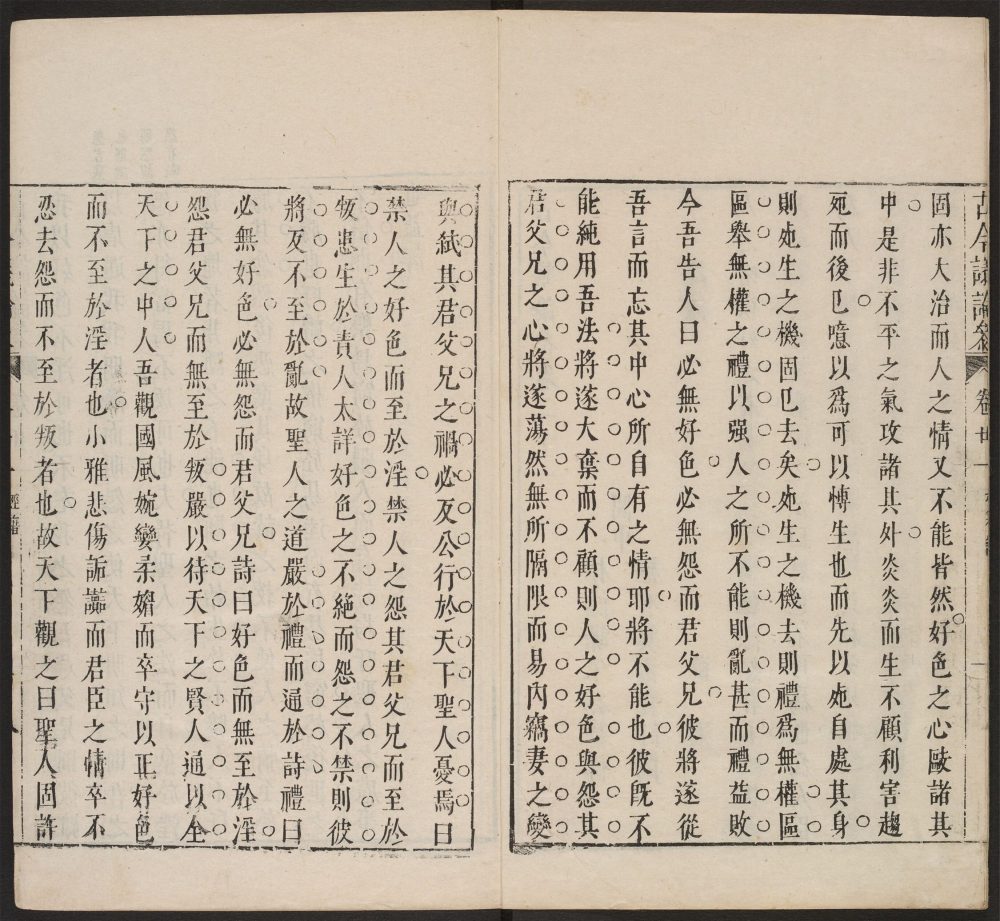 古今議論參
卷廿一
一
固亦大治而人之情又不能皆然好色之心敺諸其
中是非不平之氣攻諸其外炎炎而生不顧利害趨
死而後已噫以爲可以博生也而先以死自處其身
則死生之機固已去矣死生之機去則禮爲無權區
區舉無權之禮以强人之所不能則亂甚而禮益敗
今吾告人曰必無好色必無怨而君父兄彼將遂從
吾言而忘其中心所自有之情耶將不能也彼旣不
能純用吾法將遂大棄而不顧則人之好色與怨其
君父兄之心將遂蕩然無所隔限而易內竊妻之變
與弒其君父兄之禍必反公行於天下聖人憂焉曰
禁人之好色而至於淫禁人之怨其君父兄而至於
叛患生於責人太詳好色之不絶而怨之不禁則彼
將反不至於亂故聖人之道嚴於禮而通於詩禮曰
必無好色必無怨而君父兄詩曰好色而無至於淫
怨君父兄而無至於叛嚴以待天下之賢人通以全
天下之中人吾觀國風婉孌柔媚而卒守以正好色
而不至於淫者也小雅悲傷詬讟而君臣之情卒不
忍去怨而不至於叛者也故天下觀之曰聖人固許
經籍